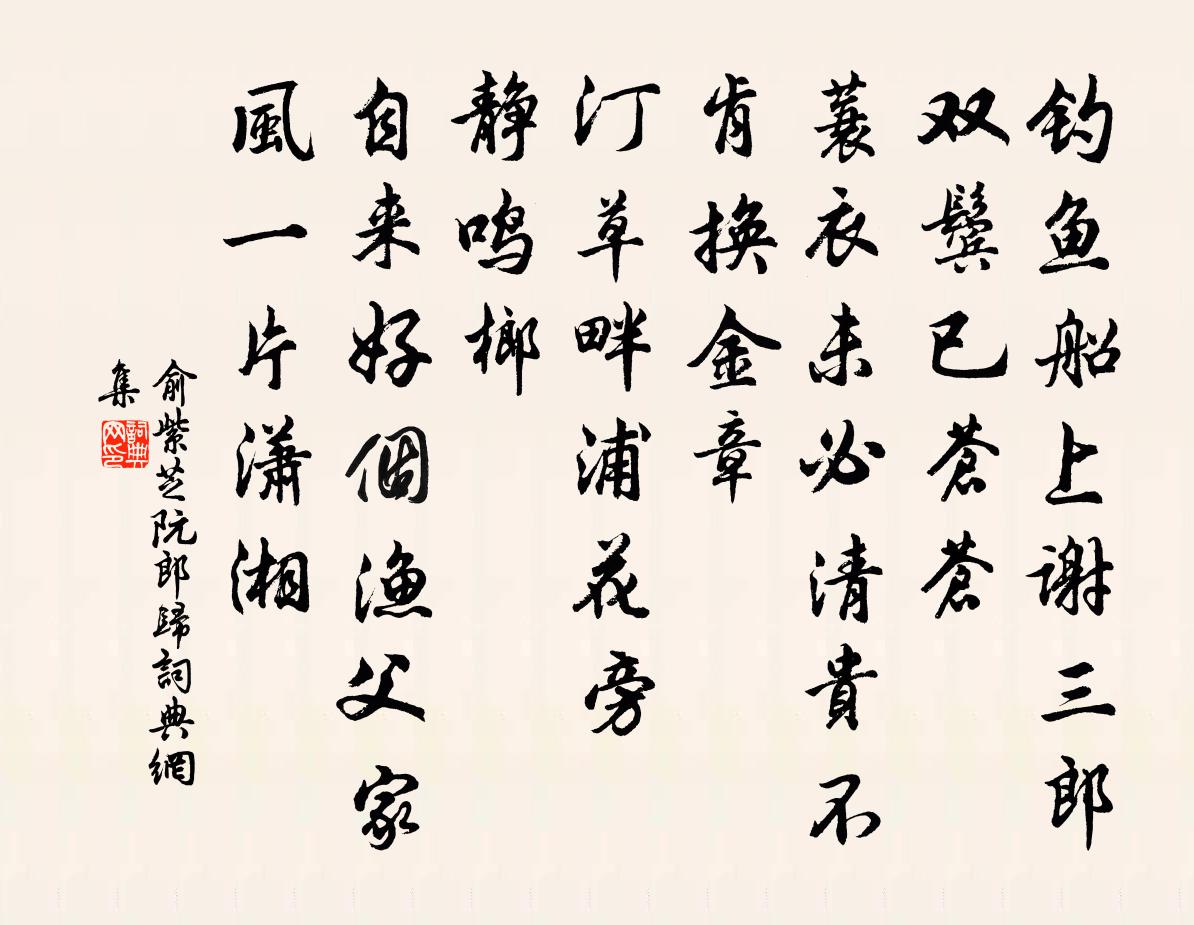 钓鱼船上谢三郎
双鬓已苍苍
蓑衣未必清貴不
肯换金章
汀草畔浦花旁
静鸣榔
自来好個渔父家
風一片潇湘
俞紫芝阮郎歸詞典網
集
詞典
网印